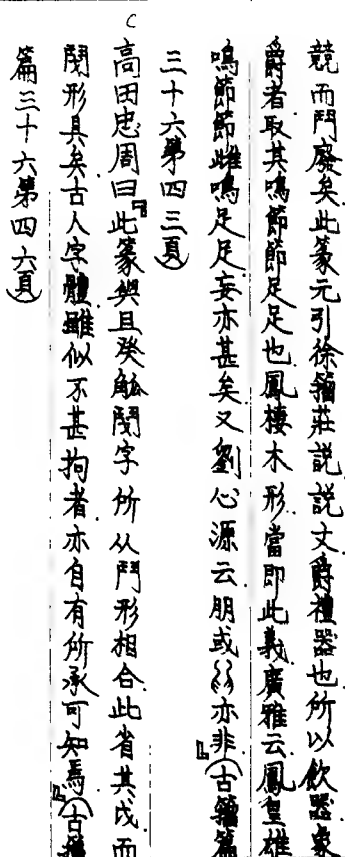 競而鬥廢矣此篆元引徐籀莊説説文爵禮器也所以飲器象
爵者取其鳴節節足足也鳳棲木形當即此義廣雅云鳳皇雄
鳴節節雌鳴足足妄亦甚矣又劉心源云朋或亦非」（古籀篇
三十六第四三頁）
高田忠周曰「此篆與且癸觚鬩字所从鬥形相合此省其戊而
鬩形具矣古人字體雖似不甚拘者亦自有所承可知焉」（古籀
篇三十六第四六頁）